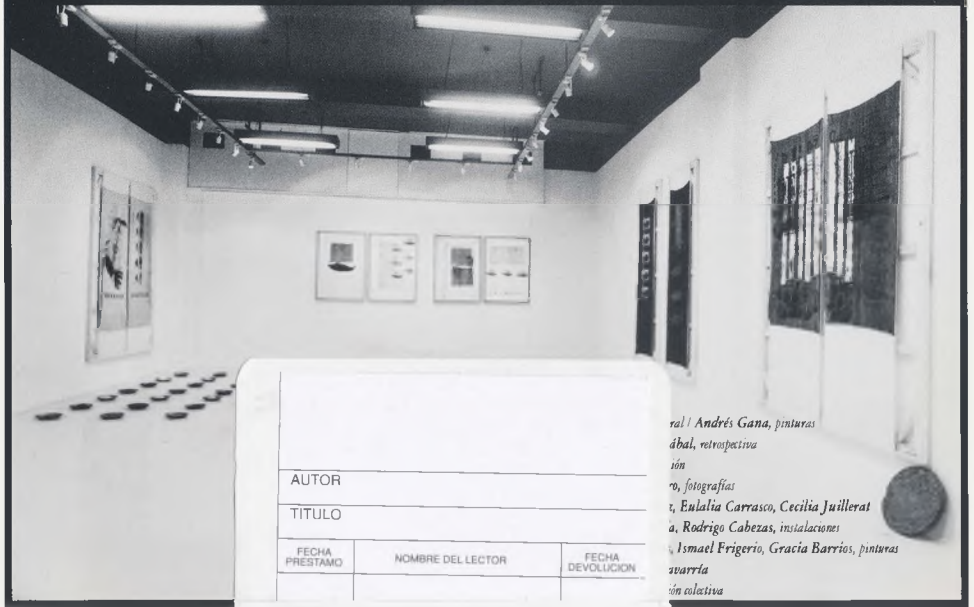 AUTOR
TITULO
FECHA PRESTAMO
NOMBRE DEL LECTOR
FECHA DEVOLUCION
/ Andrés Gana, pinturas
retrospectiva
fotografías
Eulalia Carrasco, Cecilia Juillerat
Rodrigo Cabezas, instalaciones
Ismael Frigerio, Gracia Barrios, pinturas
colectiva